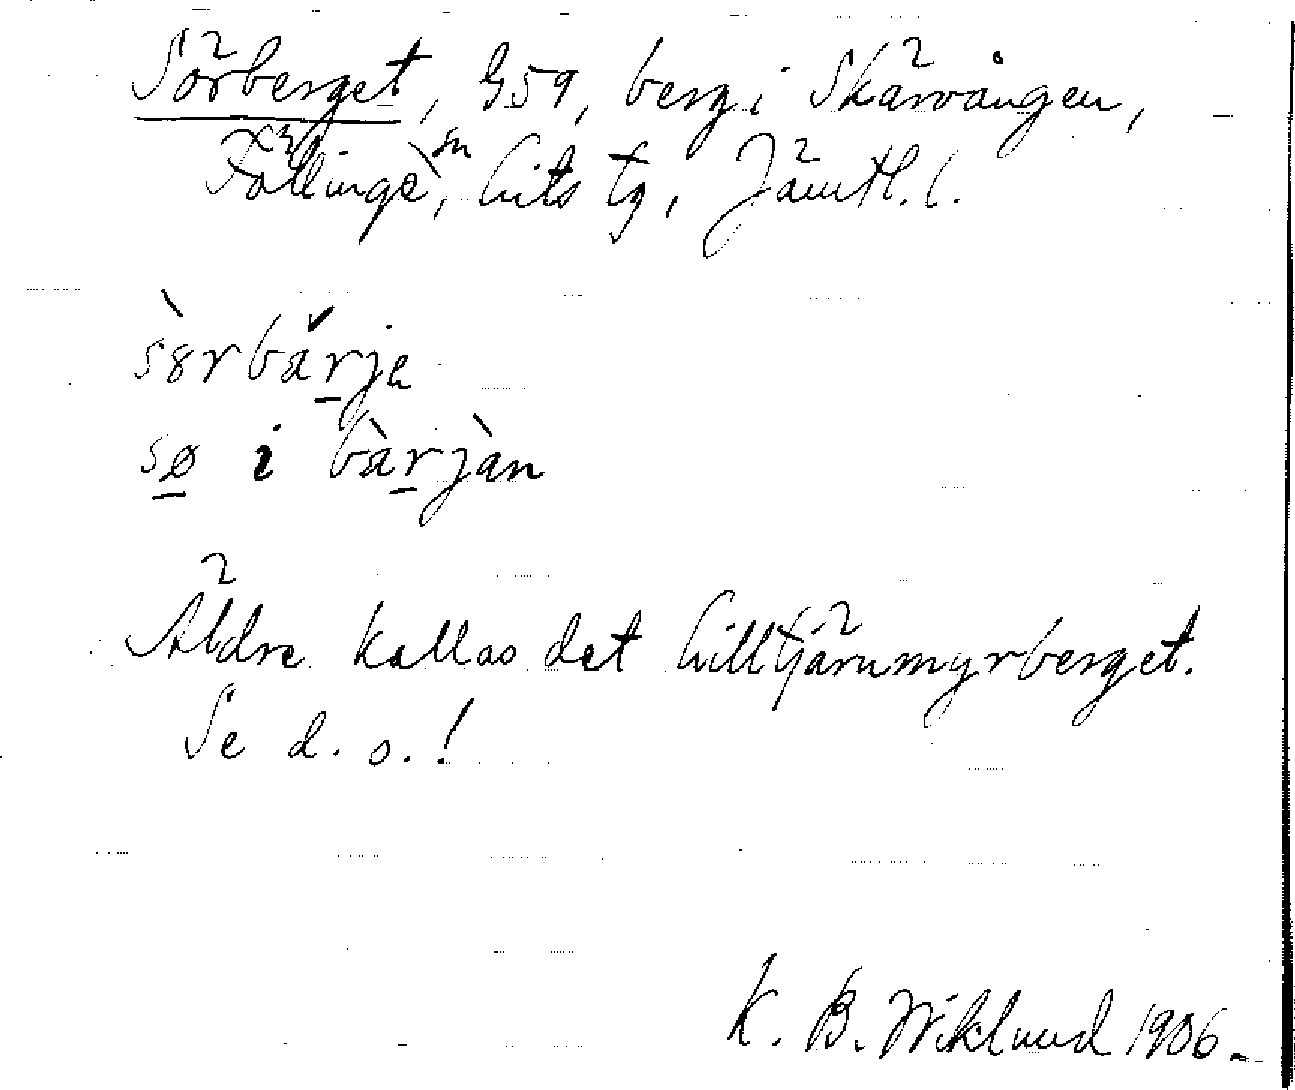 Sörberget, G59, berg i Skärvången,
Föllinge sn, Lits tg, Jämtl. l.
sèrbä̌rja
sø i bàrjàn
Äldre kallas det Lilltjärnmyrberget.
Se d. o.!
K. B. Wiklund 1906.